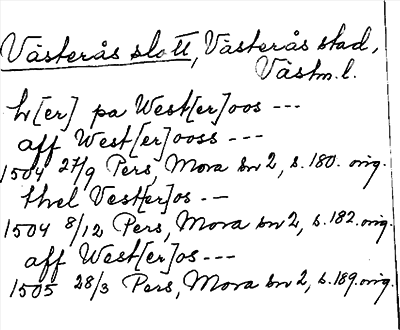 Västerås slott, Västerås stad,
Västm. l.
hr[er] pa West[er]oos ---
aff West[er]ooss ---
1504 27/9 Pers, Mora br 2, s. 180. orig.
thel Vest[er]os --
1504 8/12 Pers, Mora br 2, s. 182. orig.
aff West[er]os ---
1505 28/3 Pers, Mora br 2, s. 189. orig.